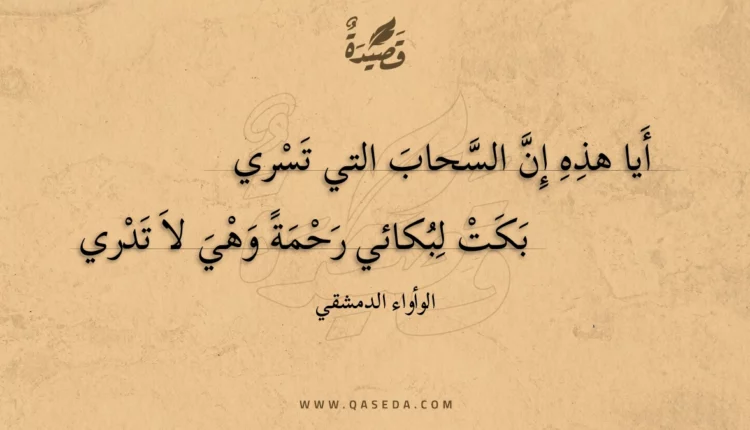 قَصِيدَةٌ
أَيا هذِهِ إِنَّ السَّحابَ التي تَسْري
بَكَتْ لِبُكائي رَحْمَةً وَهْيَ لاَ تَدْري
الوأواء الدمشقي
WWW.QASEDA.COM